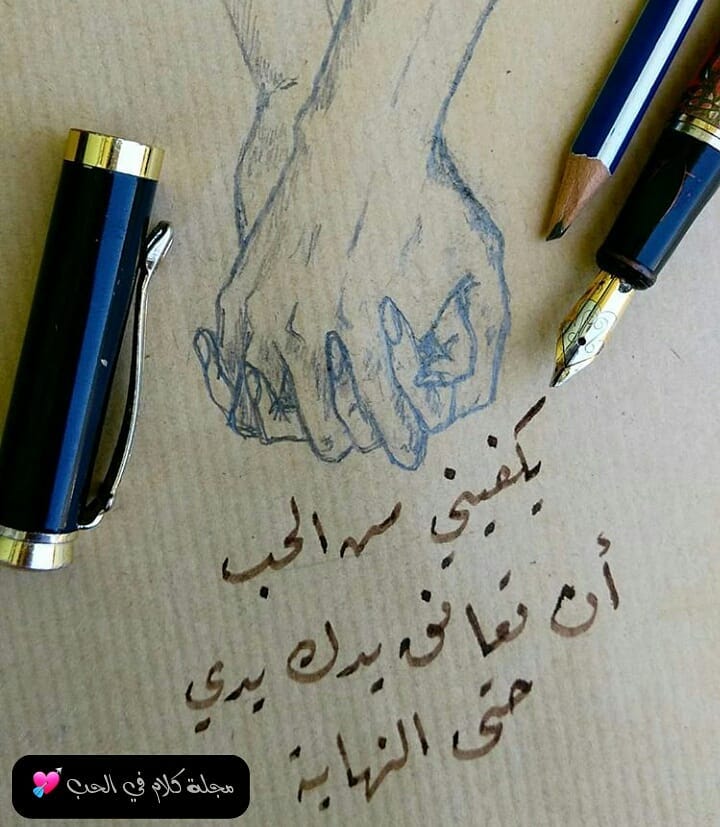 يكفيني من الحب
أن تعانق يدك يدي
حتى النهاية
مجلة كلام في الحب 💘